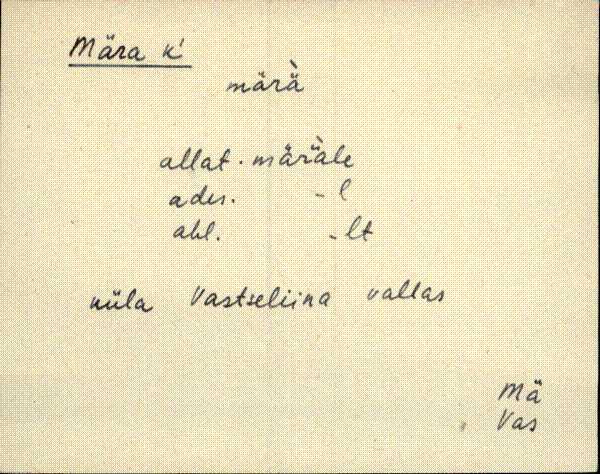 Mära k'
märä̀
allat. märä̀le
ades. -l
abl. -lt
küla Vastseliina vallas
Mä
Vas